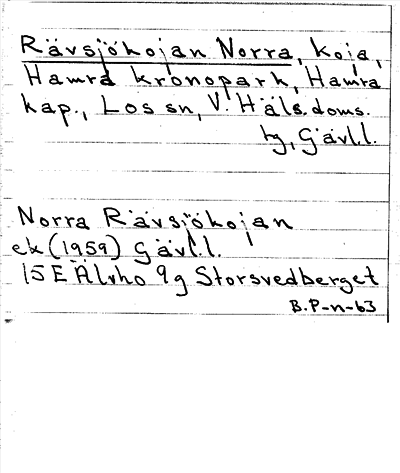 Rävsjökojan Norra, koja,
Hamra kronopark, Hamra
kap., Los sn, V. Häls. doms.
tg, Gävl.l.
Norra Rävsjökojan
ek (1959) Gävl.l.
15E Älvho 9g Storsvedberget
B.P-n-63